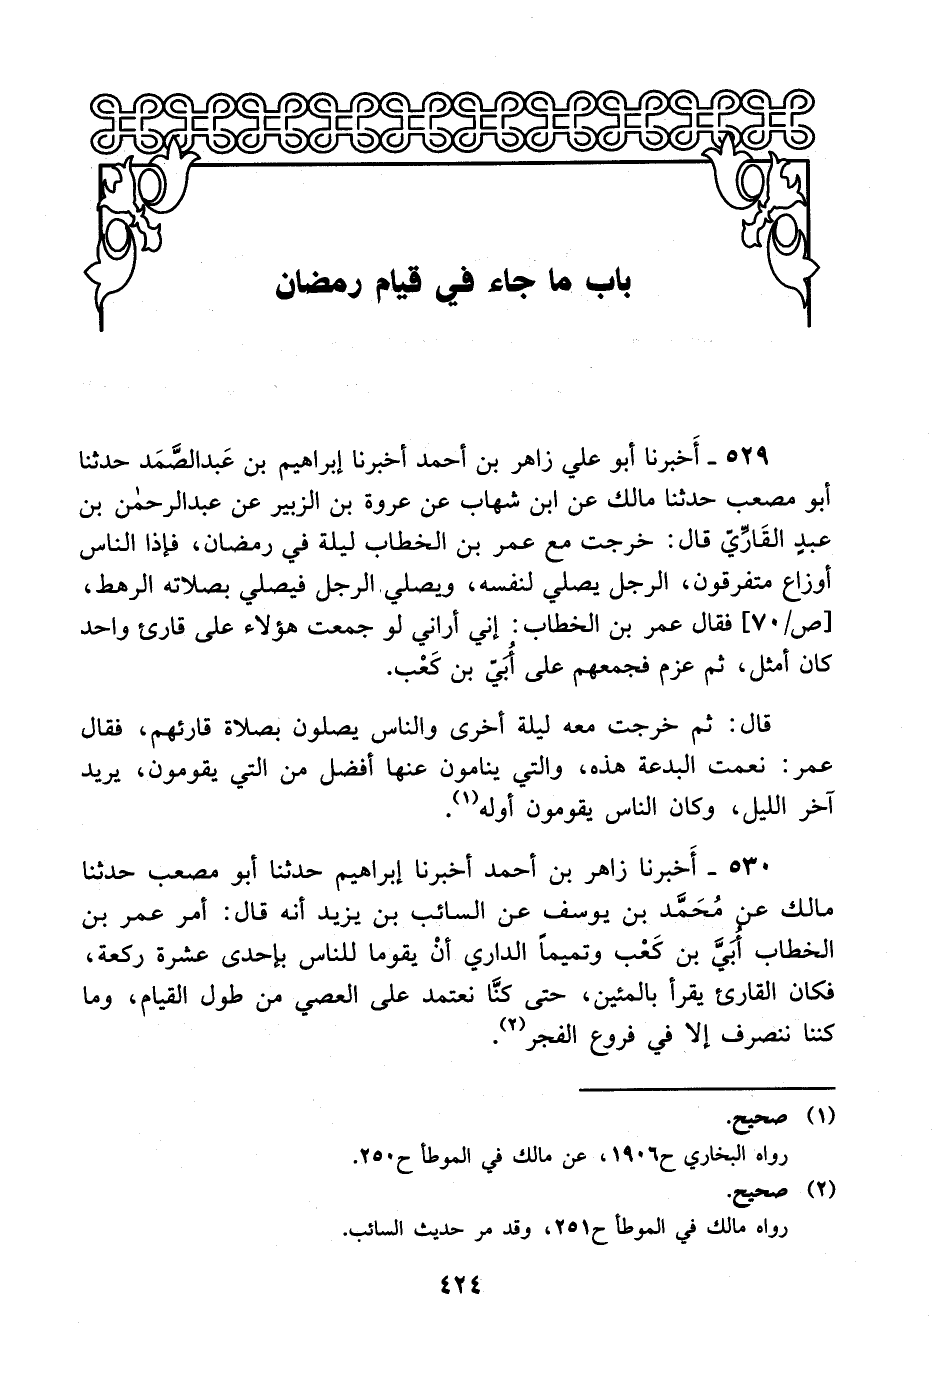 باب ما جاء في قيام رمضان
٥٢٩ ـ أَخبرنا أبو علي زاهر بن أحمد أخبرنا إبراهيم بن عَبدالصَّمَد حدثنا
أبو مصعب حدثنا مالك عن ابن شهاب عن عروة بن الزبير عن عبدالرحمٰن بن
عبدٍ القَارِّيّ قال: خرجت مع عمر بن الخطاب ليلة في رمضان، فإذا الناس
أوزاع متفرقون، الرجل يصلي لنفسه، ويصلي الرجل فيصلي بصلاته الرهط،
[ص/٧٠] فقال عمر بن الخطاب: إني أراني لو جمعت هؤلاء على قارئ واحد
كان أمثل، ثم عزم فجمعهم على أُبَيّ بن كَعْب.
قال: ثم خرجت معه ليلة أخرى والناس يصلون بصلاة قارئهم، فقال
عمر: نعمت البدعة هذه، والتي ينامون عنها أفضل من التي يقومون، يريد
آخر الليل، وكان الناس يقومون أوله(١).
٥٣٠ ـ أَخبرنا زاهر بن أحمد أخبرنا إبراهيم حدثنا أبو مصعب حدثنا
مالك عن مُحَمَّد بن يوسف عن السائب بن يزيد أنه قال: أمر عمر بن
الخطاب أُبَيَّ بن كَعْب وتميماً الداري أنْ يقوما للناس بإحدى عشرة ركعة،
فكان القارئ يقرأ بالمئين، حتى كنَّا نعتمد على العصي من طول القيام، وما
كننا ننصرف إلا في فروع الفجر(٢).
(١) صحيح.
رواه البخاري ح١٩٠٦، عن مالك في الموطأ ح٢٥٠.
(٢) صحيح.
رواه مالك في الموطأ ح٢٥١، وقد مر حديث السائب.
٤٢٤